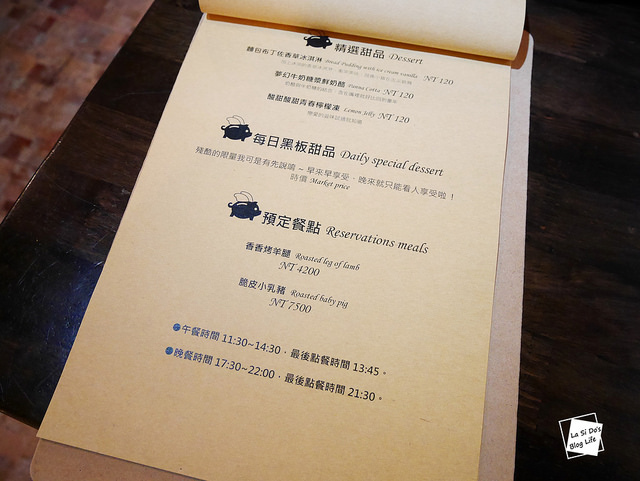 精選甜品 Dessert
麵包布丁佐香草冰淇淋 Bread Pudding with ice cream vanilla NT 120
夢幻牛奶糖漿鮮奶酪 Panna Cotta NT 120
酸甜酸甜青春檸檬凍 Lemon Jelly NT 120
每日黑板甜品 Daily special dessert
殘酷的限量我可是有先說唷~早來早享受，晚來就只能看人享受啦！
時價 Market price
預定餐點 Reservations meals
香香烤羊腿 Roasted leg of lamb
NT 4200
脆皮小乳豬 Roasted baby pig
NT 7500
午餐時間 11:30~14:30，最後點餐時間 13:45。
晚餐時間 17:30~22:00，最後點餐時間 21:30。
La Si Do's
Blog Life